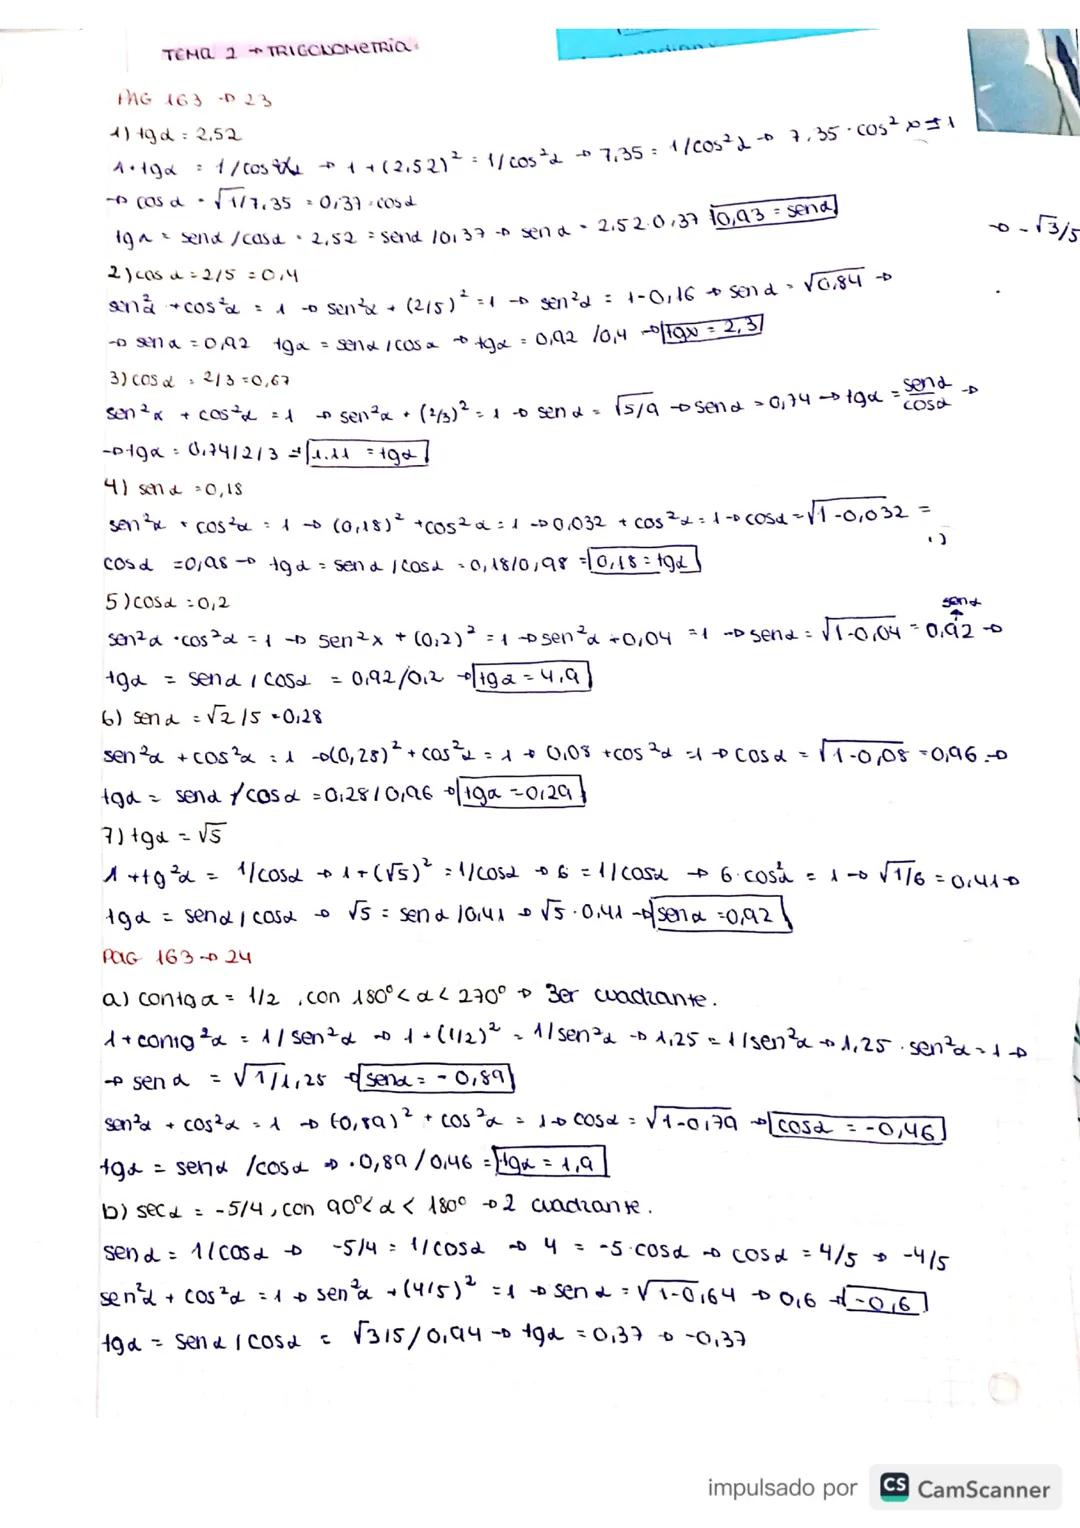 TEMA 2 → TRIGONOMETRIA.
PAG 163 → 23
1) tgα = 2,52
1+tgα = 1/cos²α → 1+(2,52)² = 1/cos²α → 7,35 = 1/cos²α → 7,35·cos²α = 1
→ cosα = √1/7,35 = 0,37 = cosα
tgα = senα/cosα = 2,52 = senα/0,37 → senα = 2,52·0,37 → 0,93 = senα
→ -√3/5
2) cosα = 2/5 = 0,4
sen²α + cos²α = 1 → sen²α + (2/5)² = 1 → sen²α = 1-0,16 → senα = √0,84 →
→ senα = 0,92 tgα = senα/cosα → tgα = 0,92/0,4 → tgα = 2,3
3) cosα = 2/3 = 0,67
sen²α + cos²α = 1 → sen²α + (2/3)² = 1 → senα = √5/9 → senα = 0,74 → tgα = senα/cosα →
→ tgα = 0,74/2/3 = 1.11 = tgα
4) senα = 0,18
sen²α + cos²α = 1 → (0,18)² + cos²α = 1 → 0,032 + cos²α = 1 → cosα = √1-0,032 =
cosα = 0,98 → tgα = senα/cosα = 0,18/0,98 = 0,18 = tgα
5) cosα = 0,2
senα
sen²α + cos²α = 1 → sen²x + (0,2)² = 1 → sen²α + 0,04 = 1 → senα = √1-0,04 = 0,92 →
tgα = senα/cosα = 0,92/0,2 → tgα = 4,9
6) senα = √2/5 = 0,28
sen²α + cos²α = 1 → (0,28)² + cos²α = 1 → 0,08 + cos²α = 1 → cosα = √1-0,08 = 0,96 →
tgα = senα/cosα = 0,28/0,96 → tgα = 0,29
7) tgα = √5
1+tg²α = 1/cosα → 1+(√5)² = 1/cosα → 6 = 1/cosα → 6·cos²α = 1 → √1/6 = 0,41 →
tgα = senα/cosα → √5 = senα/0,41 → √5·0,41 → senα = 0,92
PAG 163 → 24
a) contgα = 1/2, con 180º < α < 270º → 3er cuadrante.
1+contg²α = 1/sen²α → 1+(1/2)² = 1/sen²α → 1,25 = 1/sen²α → 1,25·sen²α = 1 →
→ senα = √1/1,25 → senα = -0,89
sen²α + cos²α = 1 → (0,89)² + cos²α = 1 → cosα = √1-0,79 → cosα = -0,46
tgα = senα/cosα → -0,89/0,46 = tgα = 1,9
b) secα = -5/4, con 90º < α < 180º → 2 cuadrante.
senα = 1/cosα → -5/4 = 1/cosα → 4 = -5·cosα → cosα = 4/5 → -4/5
sen²α + cos²α = 1 → sen²α + (4/5)² = 1 → senα = √1-0,64 → 0,6 → -0,6
tgα = senα/cosα = √3/5/0,94 → tgα = 0,37 → -0,37
impulsado por CS CamScanner